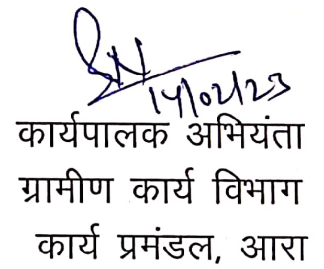 14/02/23
कार्यपालक अभियंता
ग्रामीण कार्य विभाग
कार्य प्रमंडल, आरा